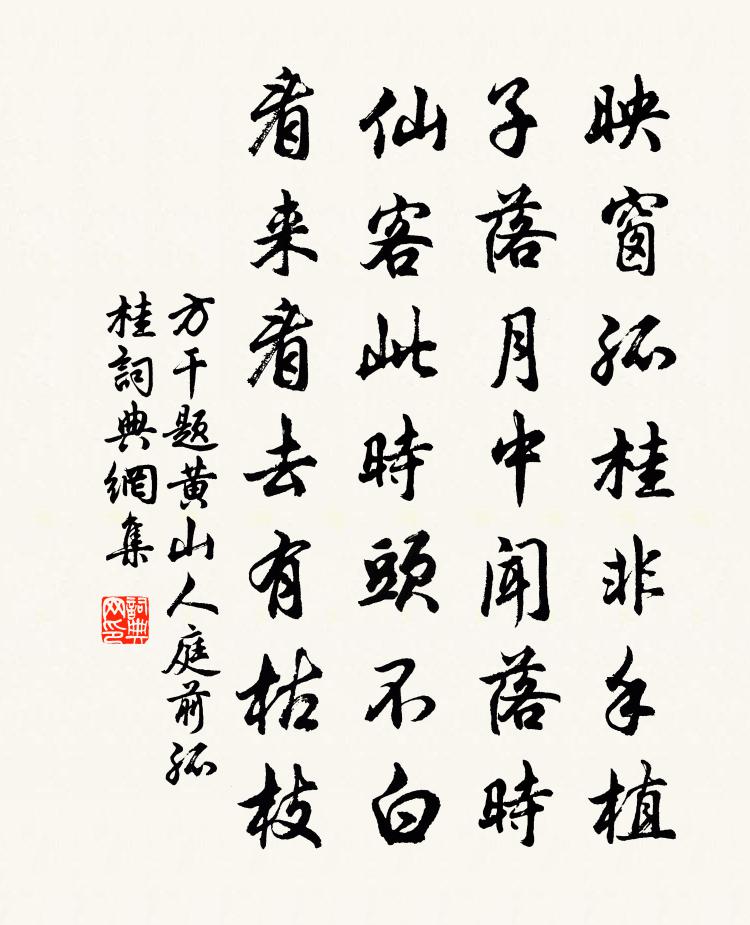 映窗孤桂非手植
子落月中聞落時
仙客此時頭不白
看來看去有枯枝
方干题黄山人庭前孤
桂詞典網集
詞典网印